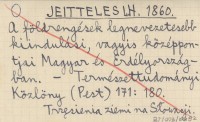 JEITTELES LH. 1860.
A földrengések legnevezetesebb
kiindulási, vagyis középpon-
tjai Magyar és Erdélyország-
ban. — Természettudományi
Közlöny (Pest) 171: 180.
Trzęsienia ziemi na